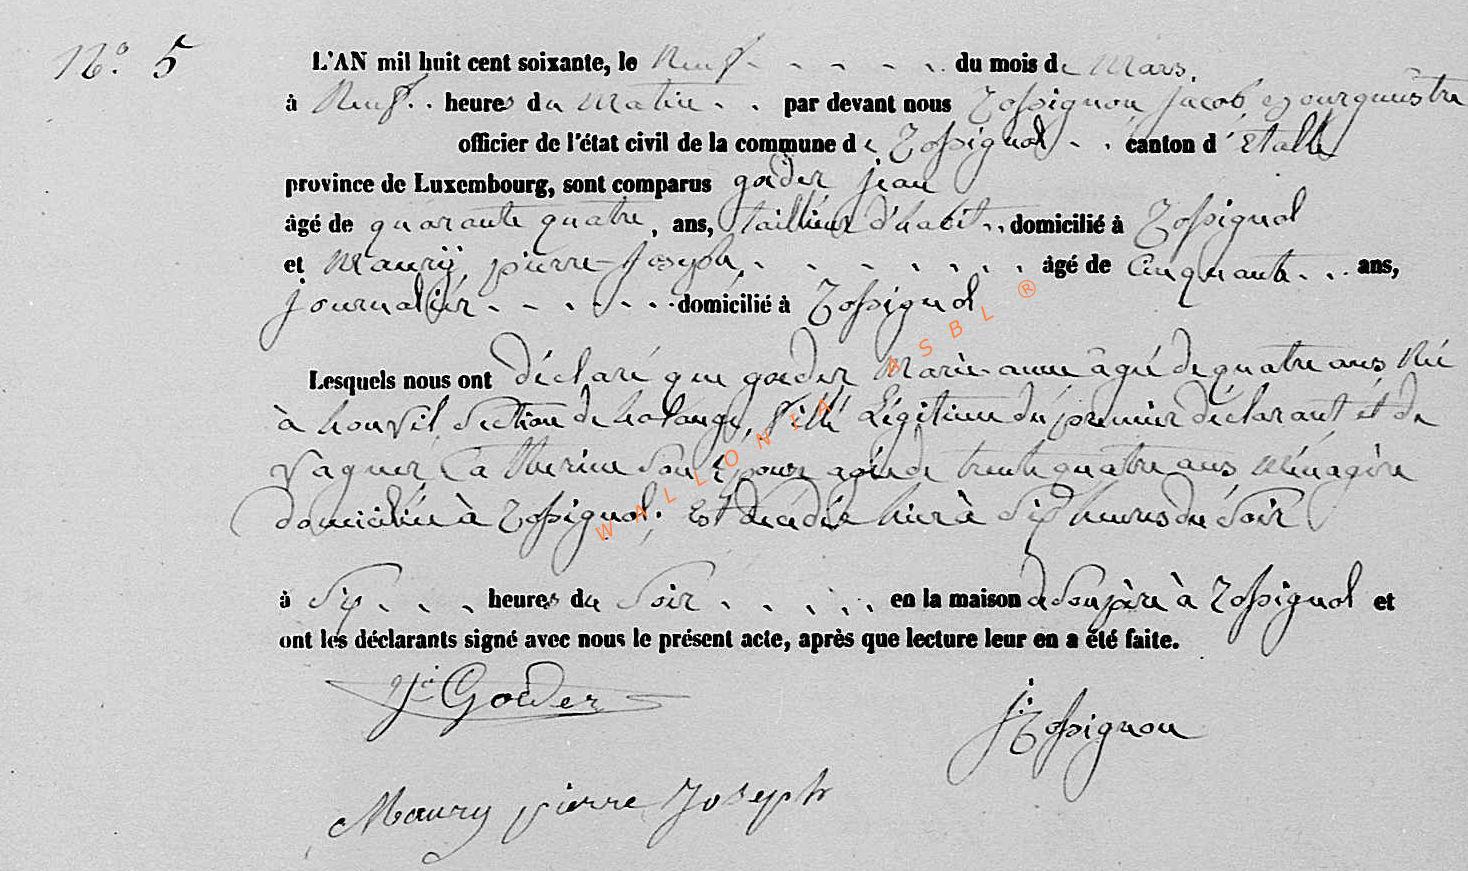 N.° 5
L'AN mil huit cent soixante, le Neuf du mois de Mars.
à Neuf heures du Matin par devant nous Rossignon Jacob, Bourgmestre
officier de l'état civil de la commune de Rossignol canton d'Etalle
province de Luxembourg, sont comparus goeder, jean
âgé de quarante quatre, ans, taillieur d'habit domicilié à Rossignol
et Maury, pierre-Joseph, âgé de Cinquante ans,
journalier domicilié à Rossignol
Lesquels nous ont déclaré que goeder Marie-anne âgé de quatre ans Né
à section de fille Légitime du premier déclarant et de
vagner, Catherine son épouse agée de trente quatre ans, Ménagère
domiciliée à Rossignol. Est décédée hier à Six heures du Soir
à Six heures du Soir en la maison d son père à Rossignol et
ont les déclarants signé avec nous le présent acte, après que lecture leur en a été faite.
Goeder
J. Rossignon
Maury pierre Joseph
WALLONIA ASBL ®